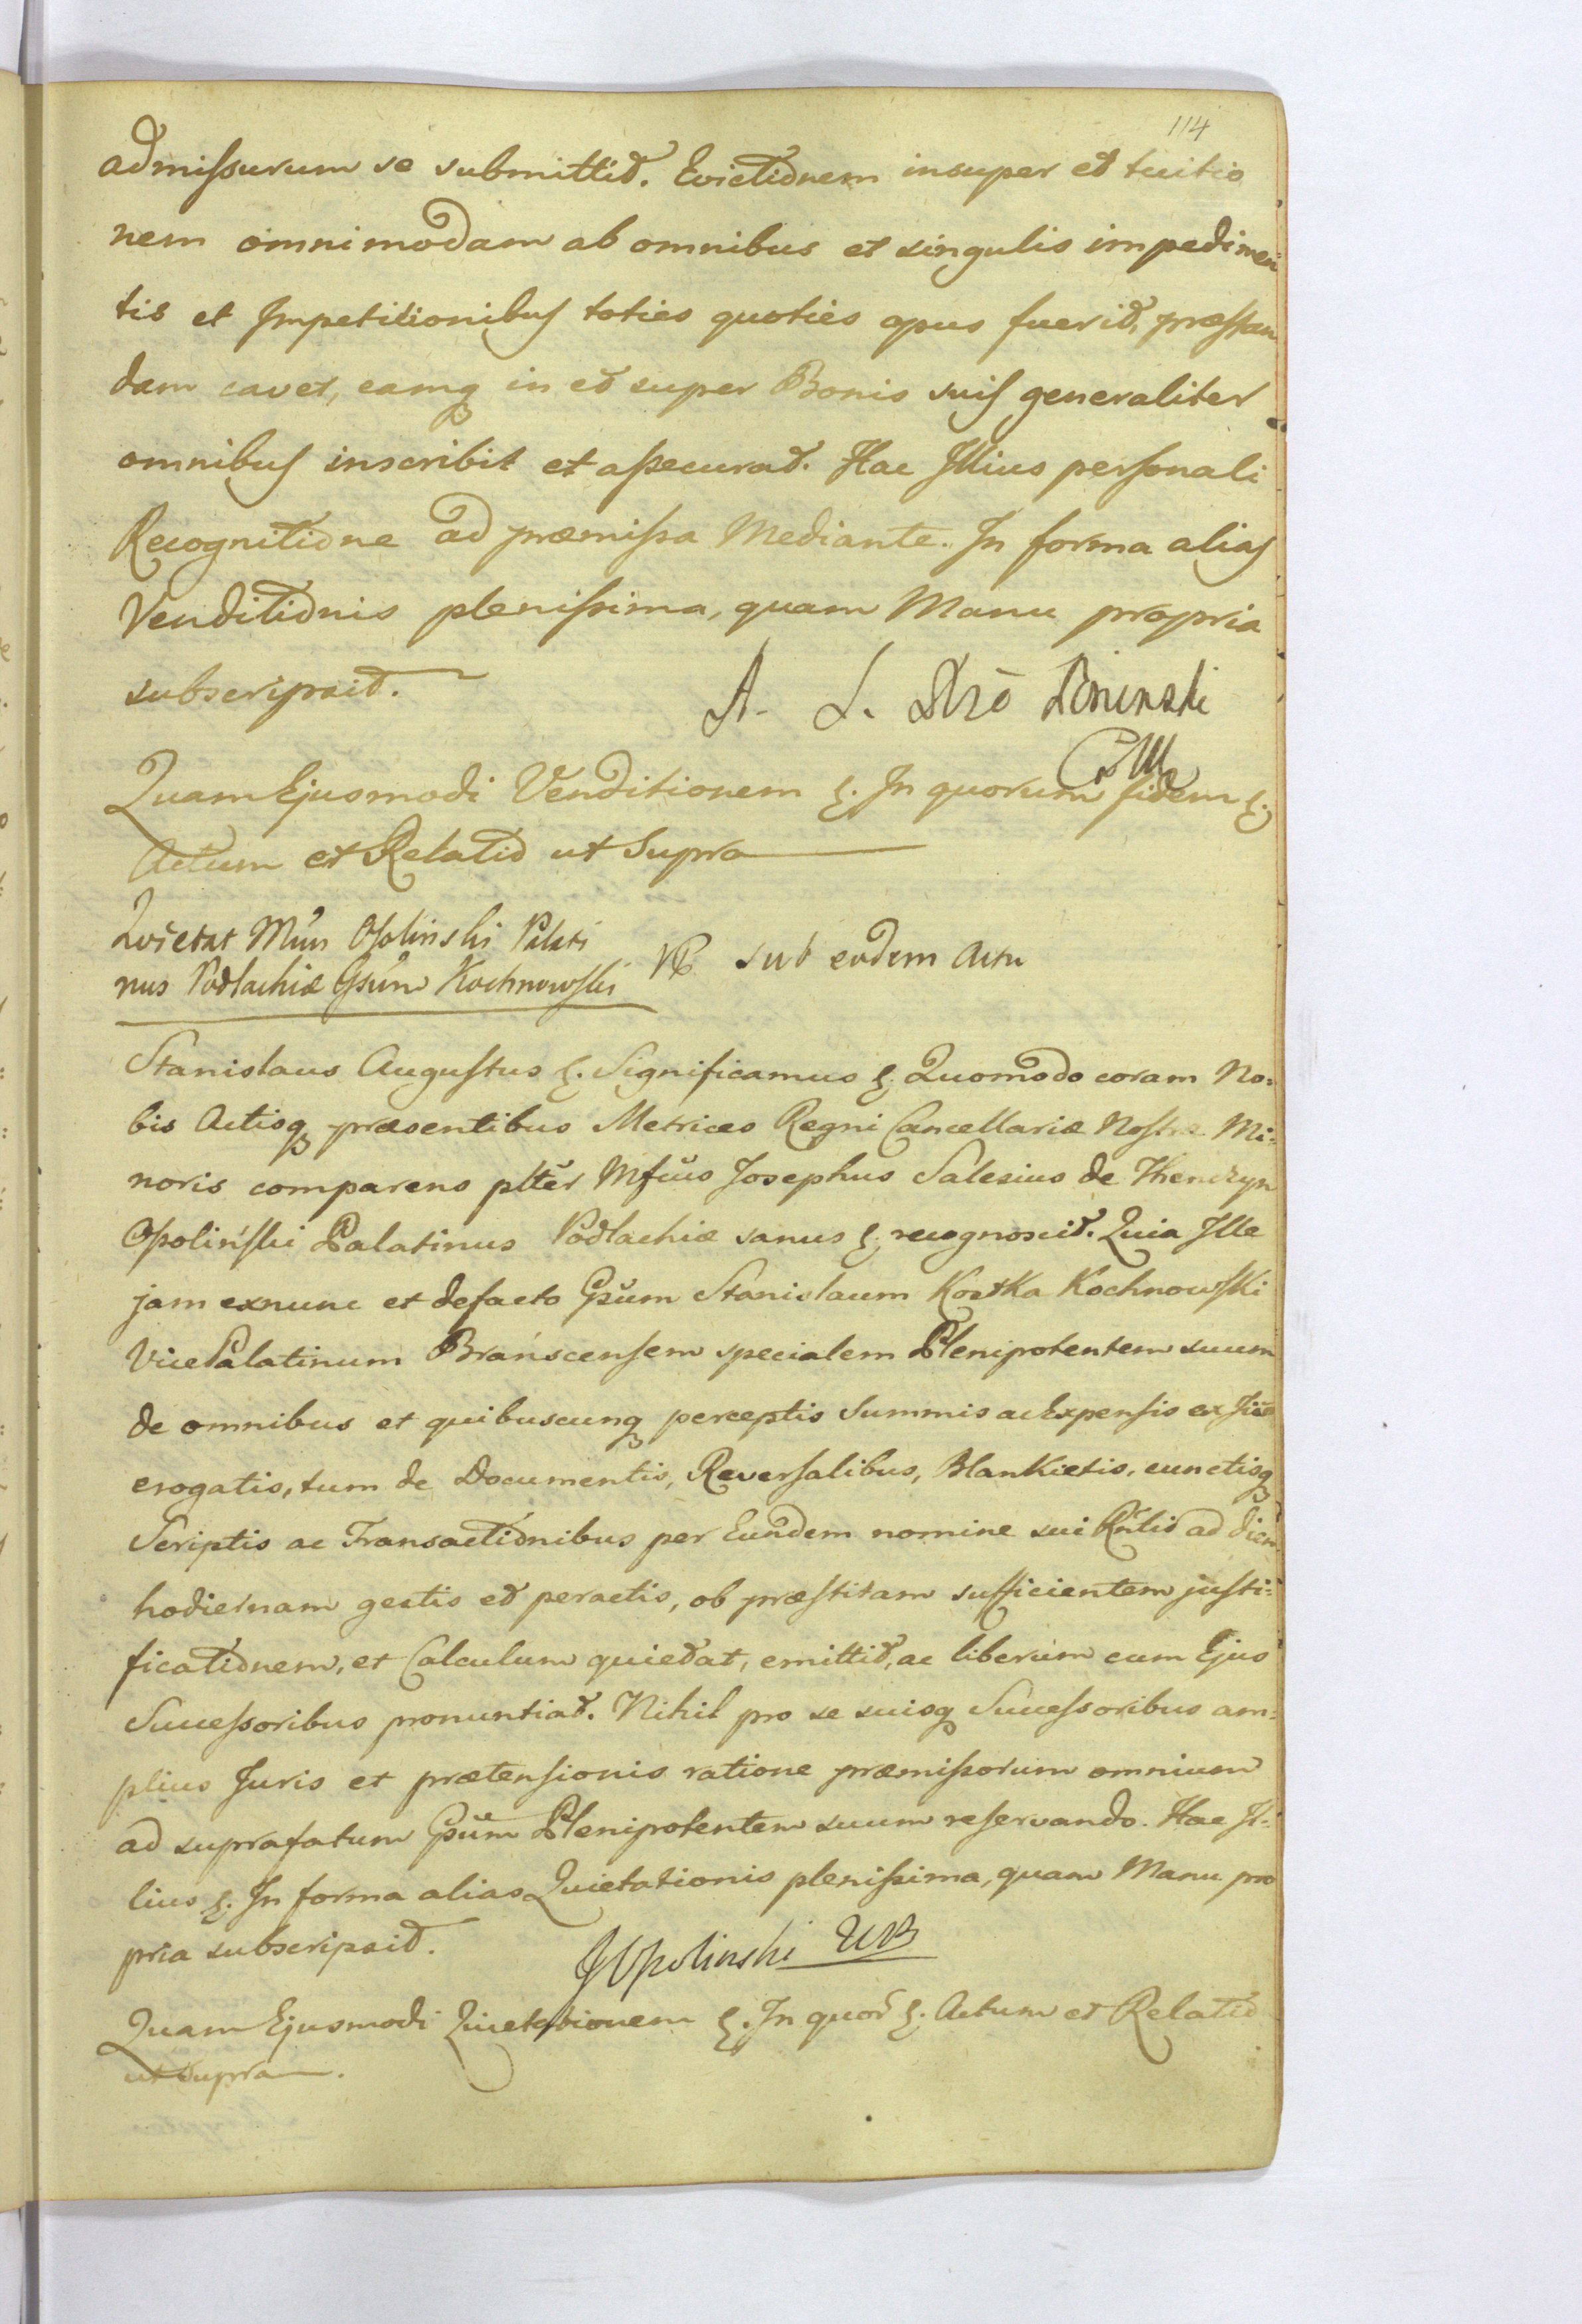 114
admissurum se submittit. Evictionem insuper et tuitio
nem omnimodam ab omnibus et singulis impedimen
tis et Impetitionibus toties quoties opus fuerit, præstan
dam cavet, eamq in et super Bonis suis generaliter
omnibus inscribit et assecurat. Hac Illius personali
Recognitione ad præmissa Mediante. In forma alias
Venditionis plenissima, quam Manu propria
subscripsit.
A. L. Poninski
Quam Ejusmodi Venditionem &. In quorum fidem &.
Actum et Relatio ut Supra
Quietat Mfcus Ossolinski Palati
nus Podlachiæ Gsum Kochnowski
sub eodem Actu
Stanislaus Augustus &. Significamus &. Quomodo coram No:
bis Actisq præsentibus Metrices Regni Cancellariæ Nostræ Mi:
noris comparens plter Mfcus Josephus Salesius de Thenczyn
Ossoliński Palatinus Podlachiæ sanus &. recognoscit. Quia Ille
jam exnunc et defacto Gsum Stanislaum Kostka Kochnowski
VicePalatinum Brańscensem specialem Plenipotentem suum
de omnibus et quibuscunq perceptis Summis ac Expensis ex
erogatis, tum de Documentis, Reversalibus, Blankietis, cunctisq
Scriptis ac Transactionibus per Eundem nomine sui Rntis ad diem
hodiernam gestis et peractis, ob præstitam sufficientem justi:
ficationem, et Calculum quietat, emittit, ac liberum cum Ejus
Successoribus pronuntiat. Nihil pro se suisq Successoribus am:
plius Juris et prætensionis ratione præmissorum omnium
ad suprafatum Gsum Plenipotentem suum reservando. Hac Il:
lius &. In forma alias Quietationis plenissima, quam Manu pro
pria subscripsit.
JOssolinski WP
Quam Ejusmodi Quietationem &. In quor &. Actum et Relatio
ut supra.